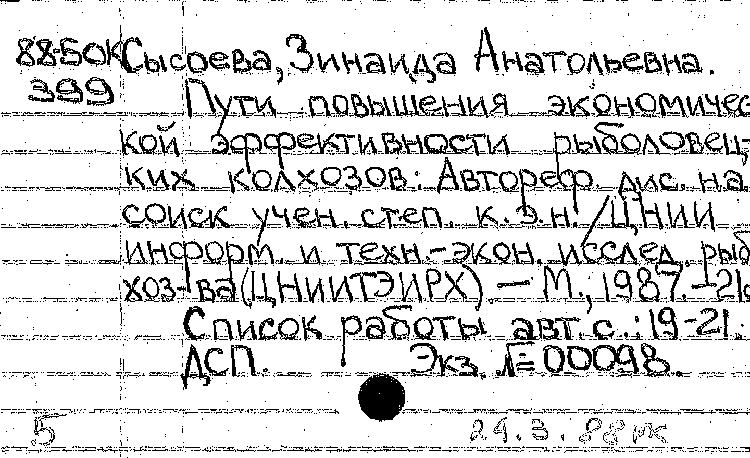 88-5ОК Сысоева, Зинаида Анатольевна.
399 Пути повышения экономичес
кой эффективности рыболовец-
ких колхозов: Автореф. дис. на
соиск учен. степ. к.э.н. /ЦНИИ
информ. и техн.-экон. исслед. рыб
хоз-ва (ЦНИИТЭИРХ). — М., 1987. – 21с
Список работы авт. с.: 19-21.
ДСП. Экз. №=00098.
5 29.3.88